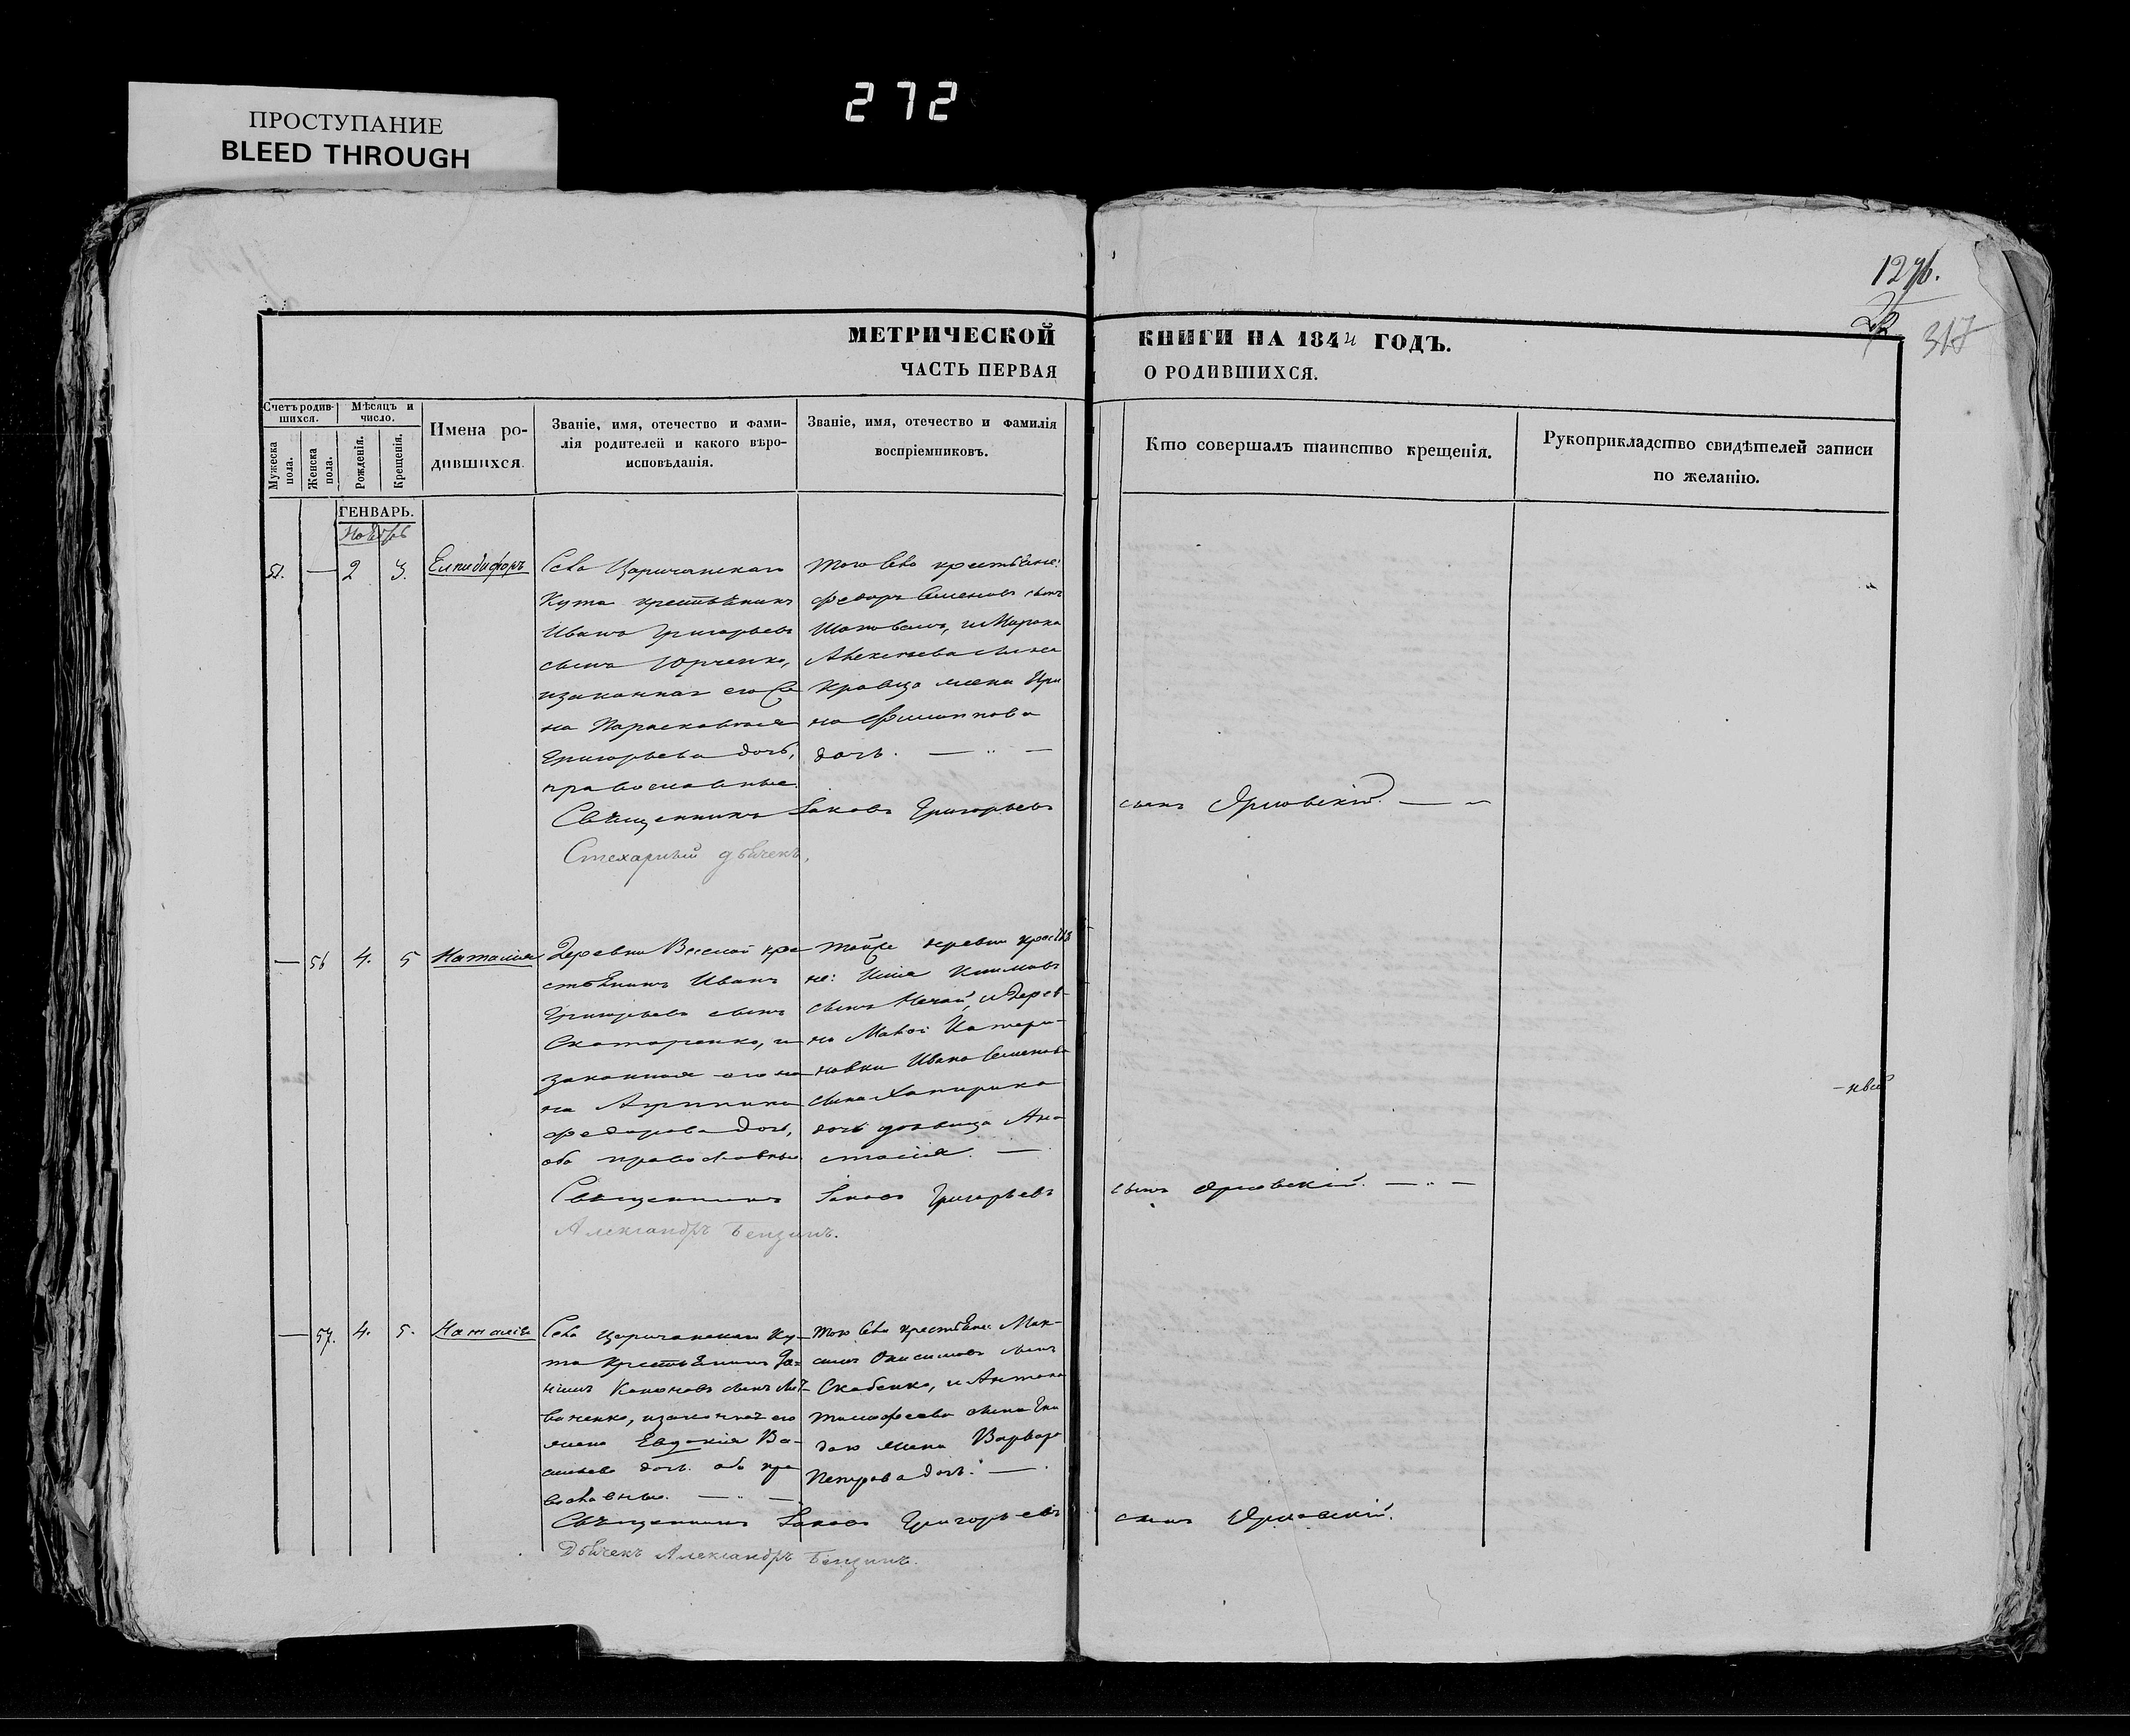 272
ПРОСТУПАНИЕ
BLEED THROUGH
1276.
317
МЕТРИЧЕСКОЙ КНИГИ НА 1844 ГОДЪ.
ЧАСТЬ ПЕРВАЯ О РОДИВШИХСЯ.
Счетъ родив-
шихся.
Мужеска
пола.
Женска
пола.
Мѣсяцъ и
число.
Рожденія.
Крещенія.
Имена ро-
дившихся.
Званіе, имя, отечество и фами-
лія родителей и какого вѣро-
исповѣданія.
Званіе, имя, отечество и фамилія
воспріемниковъ.
Кто совершалъ таинство крещенія.
Рукоприкладство свидѣтелей записи
по желанію.
ГЕНВАРЬ.
Ноябрь
— 2 3. Елпидифоръ
Села Царичанскаго
Кута крестьянинъ
Иванъ Григорьевъ
сынъ Юрченко,
изаконная его
на Парасковія
Григорьева дочь,
православные.
Того села крестьяне:
Федоръ Семеновъ сынъ
Шаповалъ, и Марка
Алексѣева сына
Кравца жена Ири
на Филиппова
дочь. —
Священникъ Іаковъ Григорьевъ сынъ Орловскій. —
Стихарный дьячекъ,
— 56 4. 5 Наталія
Деревни Веселой кре
стьянинъ Иванъ
Григорьевъ сынъ
Скотаренко, и
законная его же
на Агрипина
Федорова дочь,
оба православны
Тойже деревни крестья
не: Илія Климовъ
сынъ Нечай, и дерев-
ни Малой Катери-
новки Ивана Семенова
сына
дочь дѣвица Ана
стасія. —
Священникъ Іаковъ Григорьевъ сынъ Орловскій. —
Александръ Бензинъ.
— 57. 4. 5. Наталія
Села Царичанскаго Ку-
та крестьянинъ Да-
ніилъ Кононовъ сынъ
изаконная его
жена Евдокія Ва-
сильева дочь. оба пра
вославны. —
Того села крестьяне: Мак-
симъ Онисимовъ сынъ
Скабенко, и Антона
Тимофеева сына
жена Варвара
Петрова дочь. —
Священникъ Іаковъ Григорьевъ сынъ Орловскій.
Дьячекъ Александръ Бензинъ.